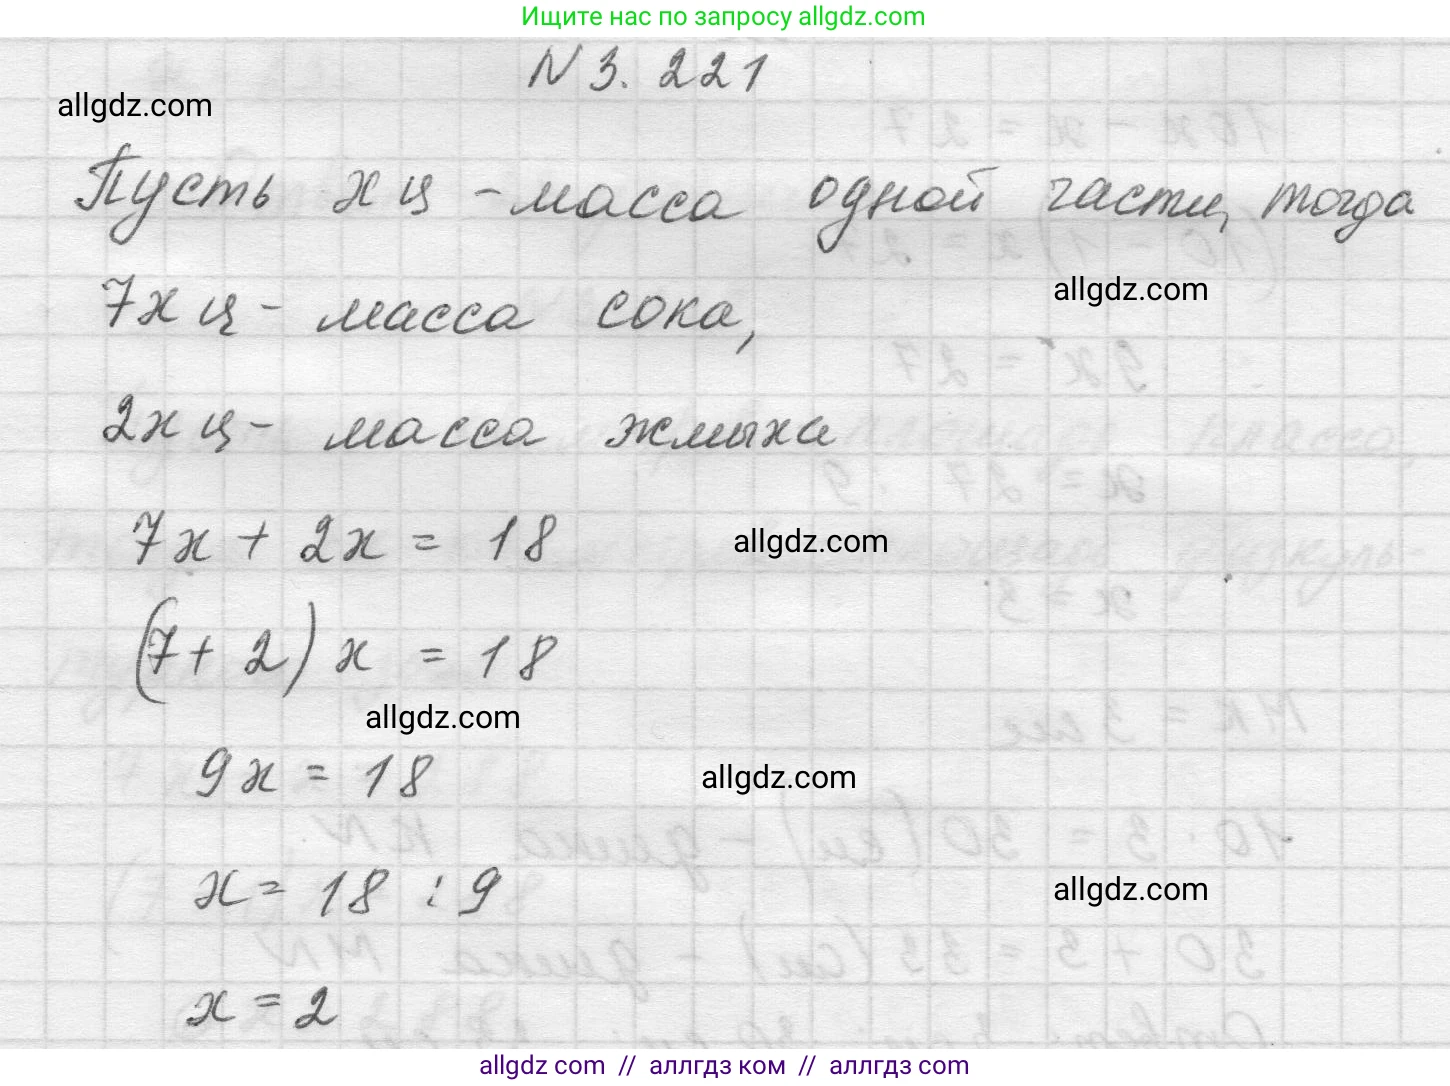 Ищите нас по запросу allgdz.com
N 3. 221
allgdz.com
Пусть х ц - масса одной части, тогда
7х ц - масса сока,
allgdz.com
2х ц - масса жмыха
7х + 2х = 18
allgdz.com
(7 + 2) х = 18
allgdz.com
9х = 18
allgdz.com
х = 18 : 9
allgdz.com
х = 2
allgdz.com // аллгдз ком // аллгдз com